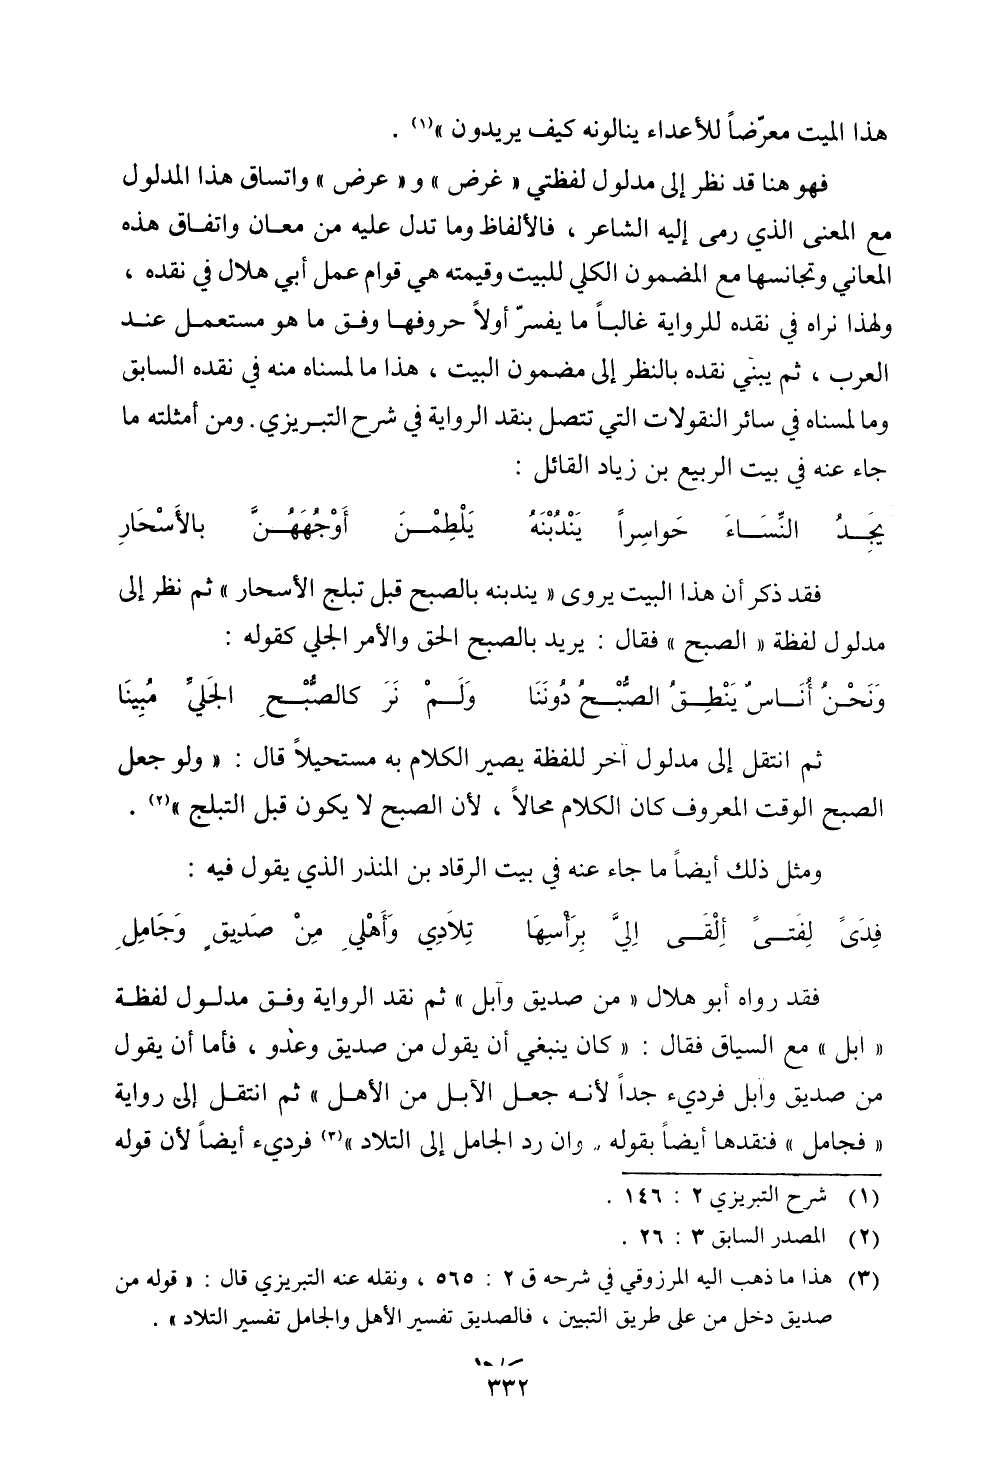 هذا الميت معرّضاً للأعداء ينالونه كيف يريدون »(١) .
فهو هنا قد نظر إلى مدلول لفظتي « غرض » و « عرض » واتساق هذا المدلول
مع المعنى الذي رمى إليه الشاعر ، فالألفاظ وما تدل عليه من معان واتفاق هذه
المعاني وتجانسها مع المضمون الكلي للبيت وقيمته هي قوام عمل أبي هلال في نقده ،
ولهذا نراه في نقده للرواية غالباً ما يفسرّ أولاً حروفها وفق ما هو مستعمل عند
العرب ، ثم يبني نقده بالنظر إلى مضمون البيت ، هذا ما لمسناه منه في نقده السابق
وما لمسناه في سائر النقولات التي تتصل بنقد الرواية في شرح التبريزي . ومن أمثلته ما
جاء عنه في بيت الربيع بن زياد القائل :
يَجِدُ النِّسَاءَ حَواسِراً يَنْدُبْنَهُ يَلْطِمْنَ أَوْجُهَهُنَّ بالأَسْحَارِ
فقد ذكر أن هذا البيت يروى « يندبنه بالصبح قبل تبلج الأسحار » ثم نظر إلى
مدلول لفظة « الصبح » فقال : يريد بالصبح الحق والأمر الجلي كقوله :
وَنَحْنُ أُنَاسٌ يَنْطِقُ الصُّبْحُ دُونَنَا وَلَمْ نَرَ كالصُّبْحِ الجَليِّ مُبِينَا
ثم انتقل إلى مدلول آخر للفظة يصير الكلام به مستحيلاً قال : « ولو جعل
الصبح الوقت المعروف كان الكلام محالاً ، لأن الصبح لا يكون قبل التبلج »(٢) .
ومثل ذلك أيضاً ما جاء عنه في بيت الرقاد بن المنذر الذي يقول فيه :
فِدَىً لِفَتىً أَلْقَى إِليَّ بِرَأْسِهَا تِلاَدِي وَأَهْلِي مِنْ صَدِيقٍ وَجَامِلِ
فقد رواه أبو هلال « من صديق وآبل » ثم نقد الرواية وفق مدلول لفظة
« ابل » مع السياق فقال : « كان ينبغي أن يقول من صديق وعدو ، فأما أن يقول
من صديق وآبل فرديء جداً لأنه جعل الآبل من الأهل » ثم انتقل إلى رواية
« فجامل » فنقدها أيضاً بقوله « وان رد الجامل إلى التلاد »(٣) فرديء أيضاً لأن قوله
(١) شرح التبريزي ٢ : ١٤٦ .
(٢) المصدر السابق ٣ : ٢٦ .
(٣) هذا ما ذهب اليه المرزوقي في شرحه ق ٢ : ٥٦٥ ، ونقله عنه التبريزي قال : « قوله من
صديق دخل من على طريق التبيين ، فالصديق تفسير الأهل والجامل تفسير التلاد » .
٣٣٢